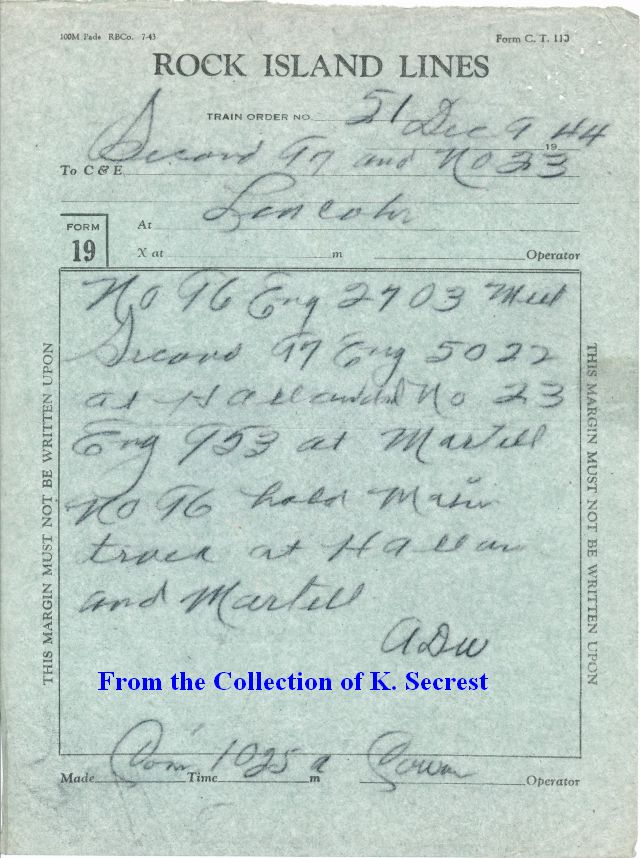 100M Pads RBCo. 7-43 Form C. T. 113
ROCK ISLAND LINES
TRAIN ORDER NO. 51
Dec 9 1944
To C & E Second 97 and No 23
At Lincoln
FORM 19
X at m Operator
No 96 Eng 2703 Meet
Second 97 Eng 5022
at Hallam and No 23
Eng 953 at Martell
No 96 hold Main
track at Hallam
and Martell
ADW
THIS MARGIN MUST NOT BE WRITTEN UPON
THIS MARGIN MUST NOT BE WRITTEN UPON
From the Collection of K. Secrest
Made Com Time 1025 a m Operator